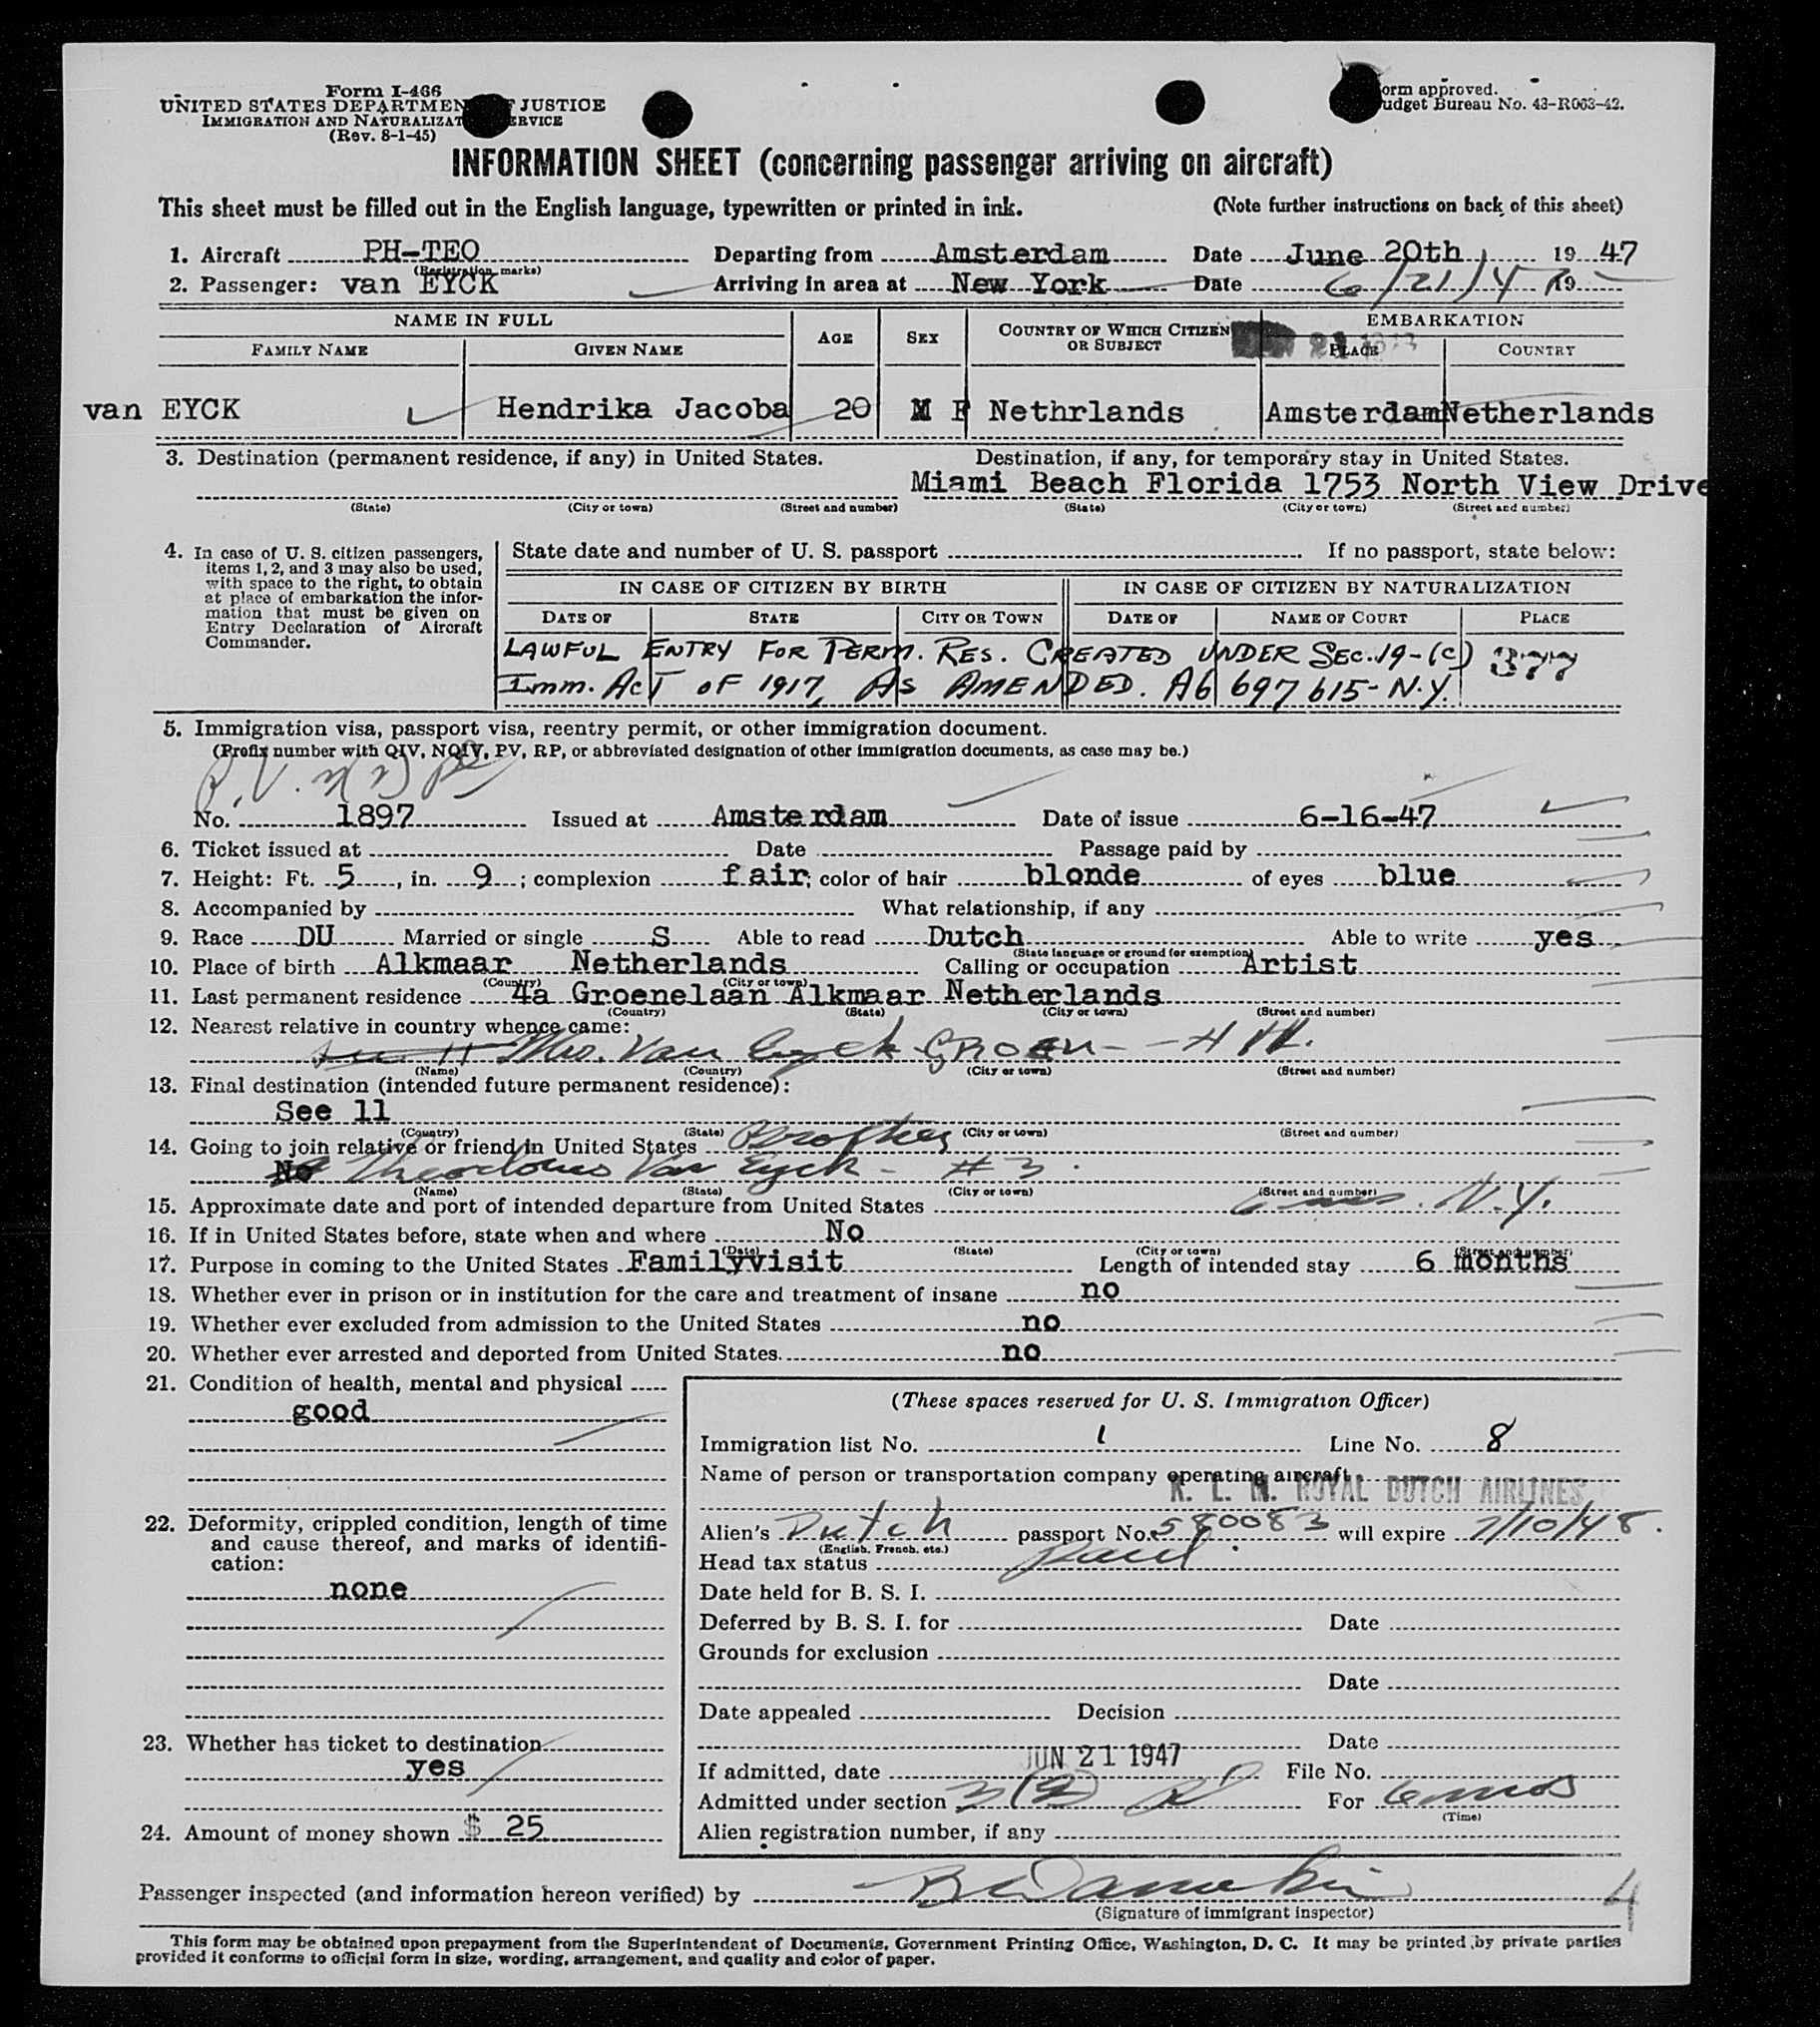 Form I-466
UNITED STATES DEPARTMEN JUSTICE
IMMIGRATION AND NATURALIZAT ERVICE
(Rev. 8-1-45)
orm approved.
udget Bureau No. 43-R063-42.
INFORMATION SHEET (concerning passenger arriving on aircraft)
This sheet must be filled out in the English language, typewritten or printed in ink. (Note further instructions on back of this sheet)
1. Aircraft PH-TEO Departing from Amsterdam Date June 20th, 1947
(Registration marks)
2. Passenger: van EYCK Arriving in area at New York Date 6/21/47 19
NAME IN FULL AGE SEX COUNTRY OF WHICH CITIZEN OR SUBJECT EMBARKATION
FAMILY NAME GIVEN NAME PLACE COUNTRY
van EYCK Hendrika Jacoba 20 F Nethrlands Amsterdam Netherlands
3. Destination (permanent residence, if any) in United States. Destination, if any, for temporary stay in United States.
Miami Beach Florida 1753 North View Drive
(State) (City or town) (Street and number) (State) (City or town) (Street and number)
4. In case of U. S. citizen passengers, items 1, 2, and 3 may also be used, with space to the right, to obtain at place of embarkation the information that must be given on Entry Declaration of Aircraft Commander.
State date and number of U. S. passport If no passport, state below:
IN CASE OF CITIZEN BY BIRTH IN CASE OF CITIZEN BY NATURALIZATION
DATE OF STATE CITY OR TOWN DATE OF NAME OF COURT PLACE
LAWFUL ENTRY FOR PERM. RES. CREATED UNDER SEC. 19-(C) 377
IMM. ACT OF 1917, AS AMENDED. A6 697 615-N.Y.
5. Immigration visa, passport visa, reentry permit, or other immigration document.
(Prefix number with QIV, NQIV, PV, RP, or abbreviated designation of other immigration documents, as case may be.)
P.V.
No. 1897 Issued at Amsterdam Date of issue 6-16-47
6. Ticket issued at Date Passage paid by
7. Height: Ft. 5, in. 9; complexion fair; color of hair blonde of eyes blue
8. Accompanied by What relationship, if any
9. Race DU Married or single S Able to read Dutch Able to write yes
(State language or ground for exemption)
10. Place of birth Alkmaar Netherlands Calling or occupation Artist
(Country) (City or town)
11. Last permanent residence 4a Groenelaan Alkmaar Netherlands
(Country) (State) (City or town) (Street and number)
12. Nearest relative in country whence came:
Mrs. Van Eyck-Groen - #11.
(Name) (Country) (City or town) (Street and number)
13. Final destination (intended future permanent residence):
See 11
(Country) (State) (City or town) (Street and number)
14. Going to join relative or friend in United States Brother
No Theodorus Van Eyck - #3.
(Name) (State) (City or town) (Street and number)
15. Approximate date and port of intended departure from United States 6 mos. N.Y.
16. If in United States before, state when and where No
(Date) (State) (City or town) (Street and number)
17. Purpose in coming to the United States Familyvisit Length of intended stay 6 months
18. Whether ever in prison or in institution for the care and treatment of insane no
19. Whether ever excluded from admission to the United States no
20. Whether ever arrested and deported from United States. no
21. Condition of health, mental and physical
good
22. Deformity, crippled condition, length of time and cause thereof, and marks of identification:
none
23. Whether has ticket to destination
yes
24. Amount of money shown $ 25
(These spaces reserved for U. S. Immigration Officer)
Immigration list No. 1 Line No. 8
Name of person or transportation company operating aircraft
K. L. M. ROYAL DUTCH AIRLINES
Alien's Dutch passport No. 580083 will expire 7/10/48.
(English, French, etc.)
Head tax status Paid.
Date held for B. S. I.
Deferred by B. S. I. for Date
Grounds for exclusion
Date
Date appealed Decision
Date
If admitted, date JUN 21 1947 File No.
Admitted under section 3(2) For 6 mos
(Time)
Alien registration number, if any
Passenger inspected (and information hereon verified) by
(Signature of immigrant inspector)
4
This form may be obtained upon prepayment from the Superintendent of Documents, Government Printing Office, Washington, D. C. It may be printed by private parties
provided it conforms to official form in size, wording, arrangement, and quality and color of paper.